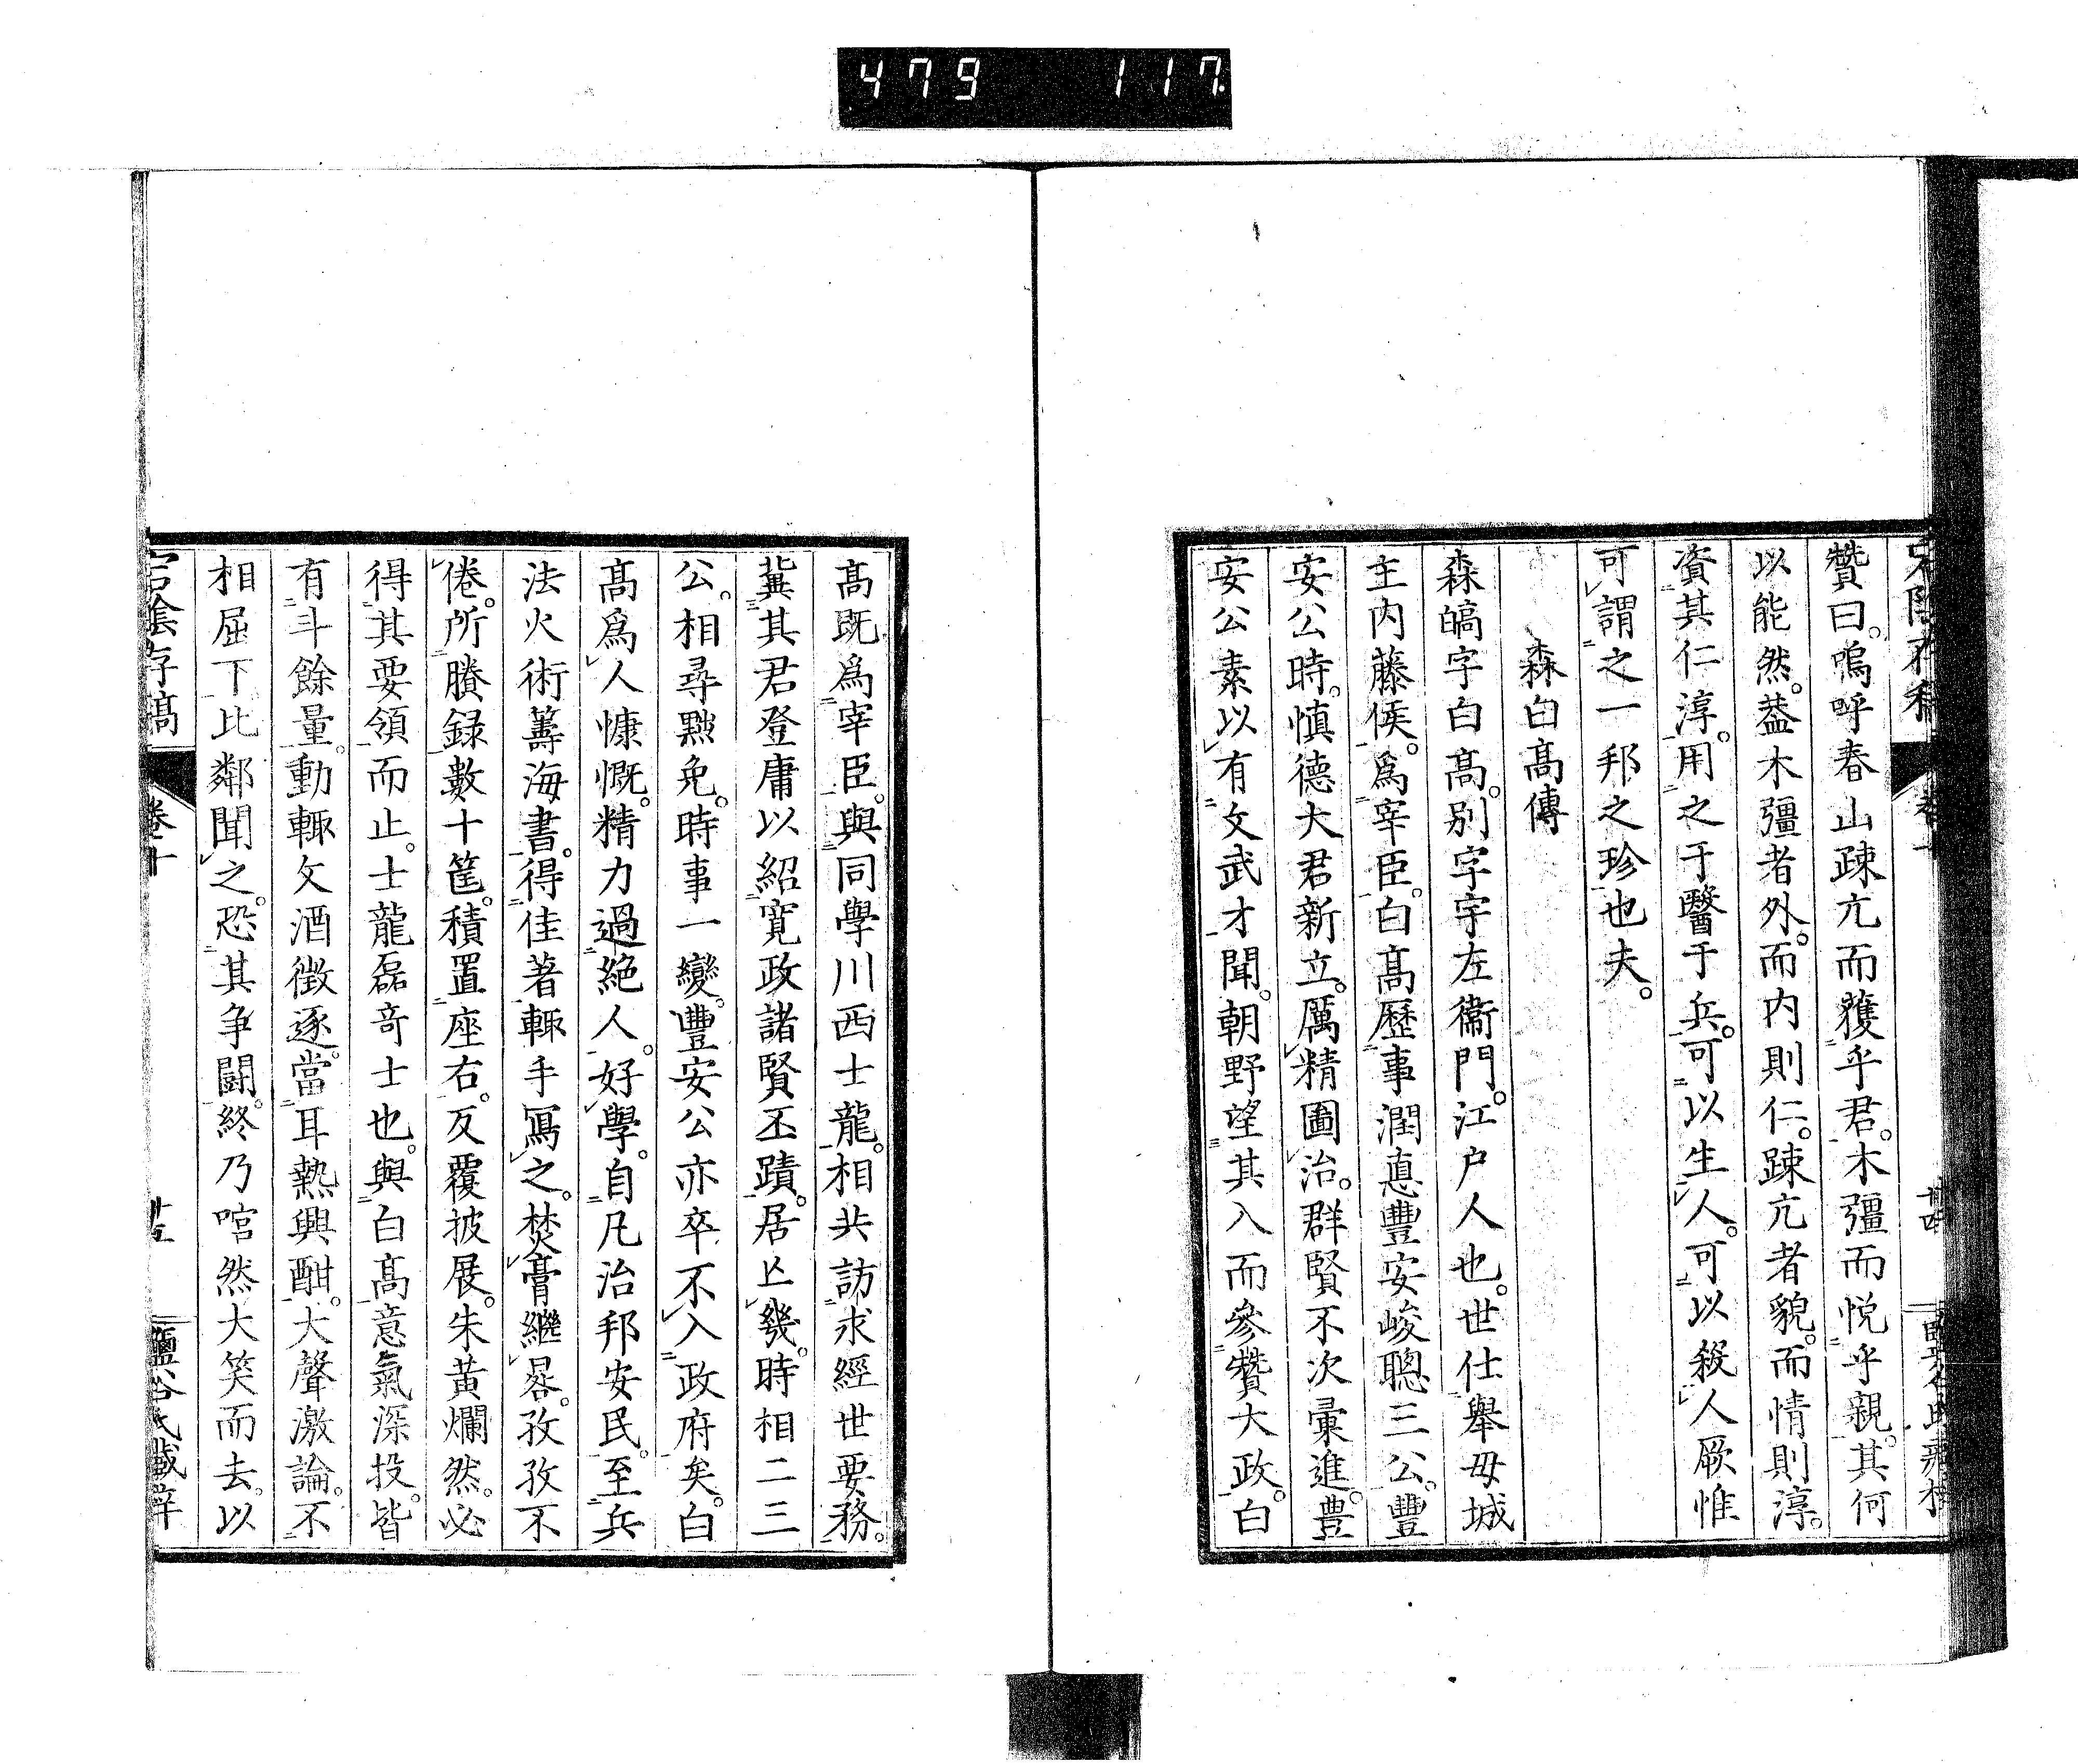 479 117
贊曰。嗚呼春山疎亢而獲乎君。木彊而悅乎親。其何
以能然。葢木彊者外。而內則仁。踈亢者貌。而情則淳。
資其仁淳。用之于醫于兵。可以生人。可以殺人厥惟
可謂之一邦之珍也夫。
森白高傳
森皜字白高。別字宇左衞門。江户人也。世仕舉毋城
主內藤侯。爲宰臣。白髙歷事潤悳豐安峻聰三公。豐
安公時。慎德大君新立。厲精圖治。群賢不次彙進。豊
安公素以有文武才聞。朝野望其入而參贊大政。白
髙既爲宰臣。與同學川西士龍。相共訪求經世要務。
冀其君登庸以紹寬政諸賢丕蹟。居亾幾。時相二三
公。相尋黜免。時事一變。豐安公亦卒不入政府矣。白
髙爲人慷慨。精力過絕人。好學。自凡治邦安民。至兵
法火術籌海書。得佳著輙手寫之。焚膏繼晷。孜孜不
倦。所賸録數十筐。積置座右。反覆披展。朱黃爛然。必
得其要領而止。士龍磊奇士也。與白髙意氣深投。皆
有斗餘量。動輙文酒徵逐。當耳熱興酣。大聲激論。不
相屈下比鄰聞之。恐其爭鬪。終乃啌然大笑而去。以
宕陰存稿
卷十
廿五